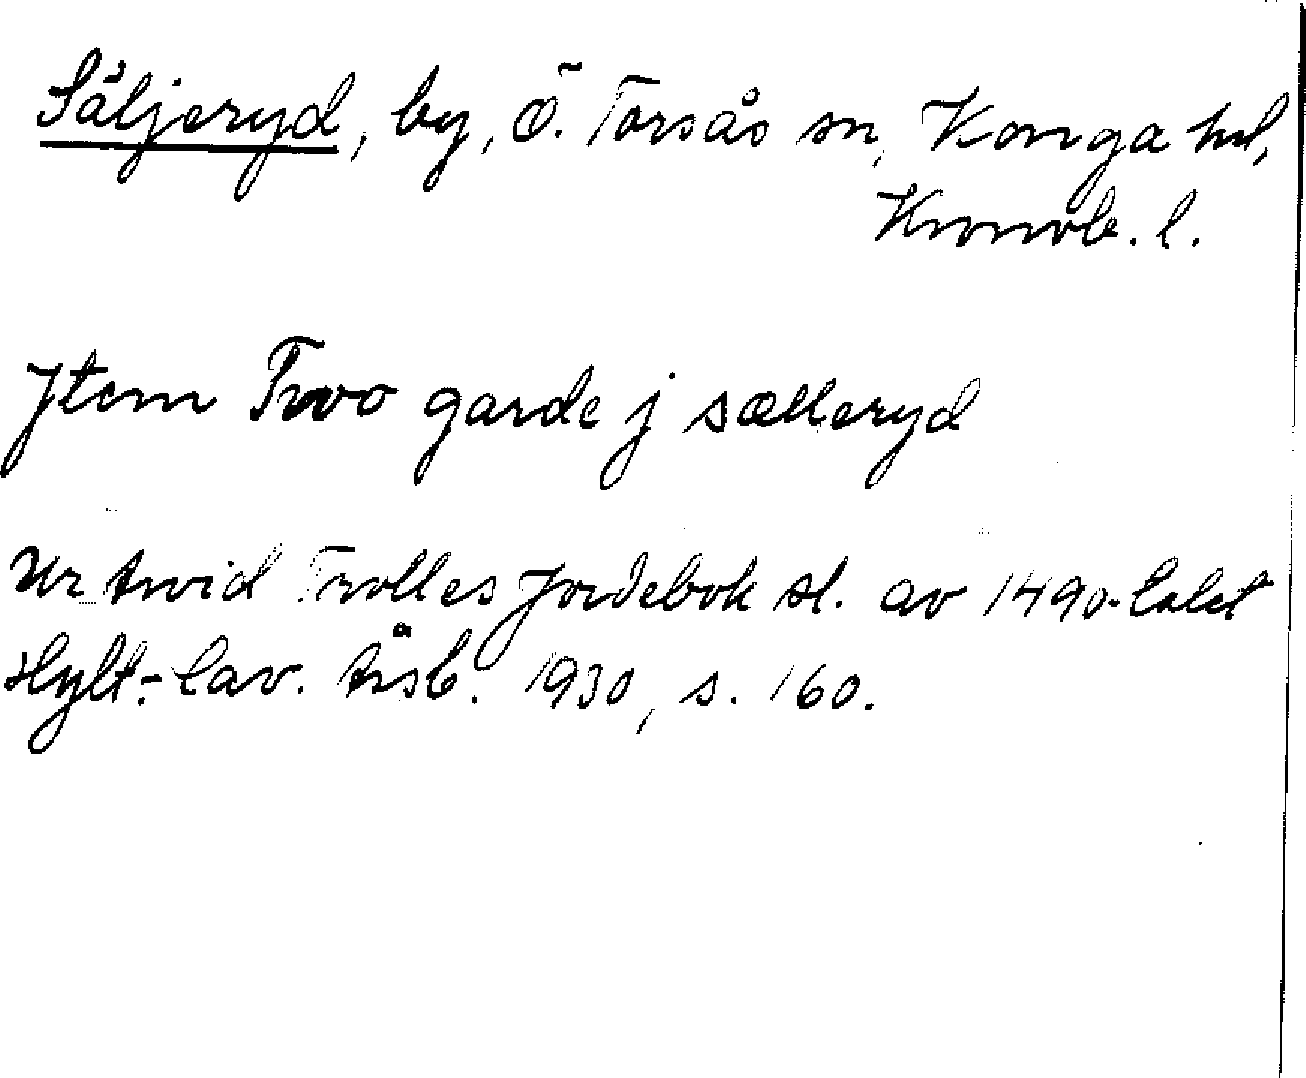 Säljeryd, by, Ö. Torsås sn, Konga hd,
Kronob. l.
Jtem Twо garde j sælleryd
Ur Arvid Trolles Jordebok sl. av 1490-talet
Hylt.-Cav. Årsb. 1930, s. 160.